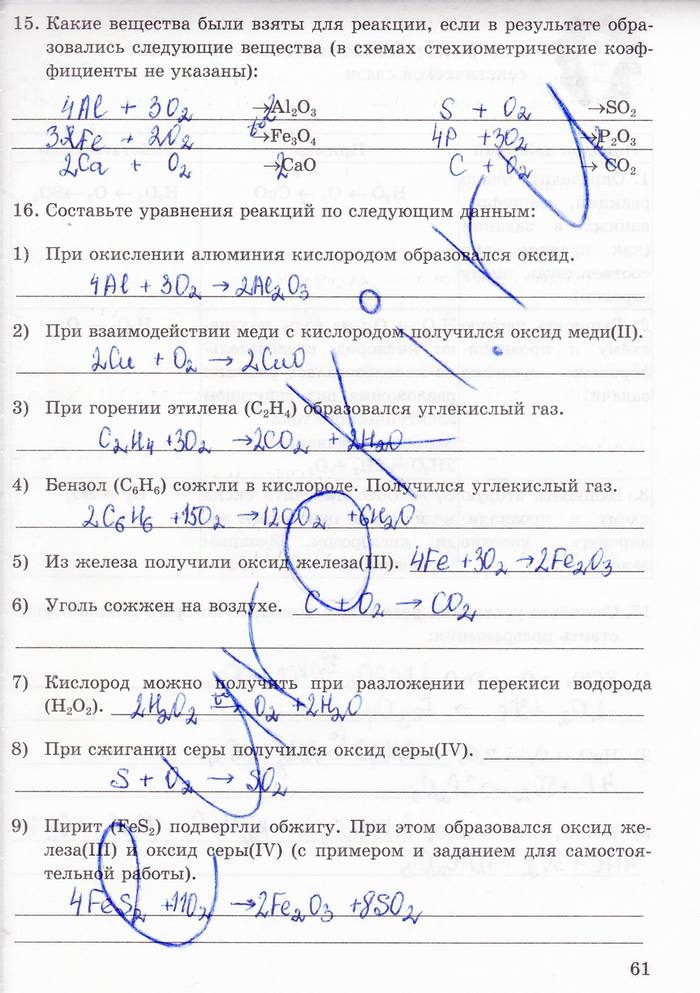 15. Какие вещества были взяты для реакции, если в результате обра-
зовались следующие вещества (в схемах стехиометрические коэф-
фициенты не указаны):
4Al + 3O₂ →2Al₂O₃ S + O₂ →SO₂
3Fe + 2O₂ t° →Fe₃O₄ 4P + 3O₂ →2P₂O₃
2Ca + O₂ →2CaO C + O₂ → CO₂
16. Составьте уравнения реакций по следующим данным:
1) При окислении алюминия кислородом образовался оксид.
4Al + 3O₂ → 2Al₂O₃
2) При взаимодействии меди с кислородом получился оксид меди(II).
2Cu + O₂ → 2CuO
3) При горении этилена (C₂H₄) образовался углекислый газ.
C₂H₄ + 3O₂ → 2CO₂ + 2H₂O
4) Бензол (C₆H₆) сожгли в кислороде. Получился углекислый газ.
2C₆H₆ + 15O₂ → 12CO₂ + 6H₂O
5) Из железа получили оксид железа(III). 4Fe + 3O₂ → 2Fe₂O₃
6) Уголь сожжен на воздухе. C + O₂ → CO₂
7) Кислород можно получить при разложении перекиси водорода
(H₂O₂). 2H₂O₂ t° → O₂ + 2H₂O
8) При сжигании серы получился оксид серы(IV).
S + O₂ → SO₂
9) Пирит (FeS₂) подвергли обжигу. При этом образовался оксид же-
леза(III) и оксид серы(IV) (с примером и заданием для самостоя-
тельной работы).
4FeS₂ + 11O₂ → 2Fe₂O₃ + 8SO₂
61